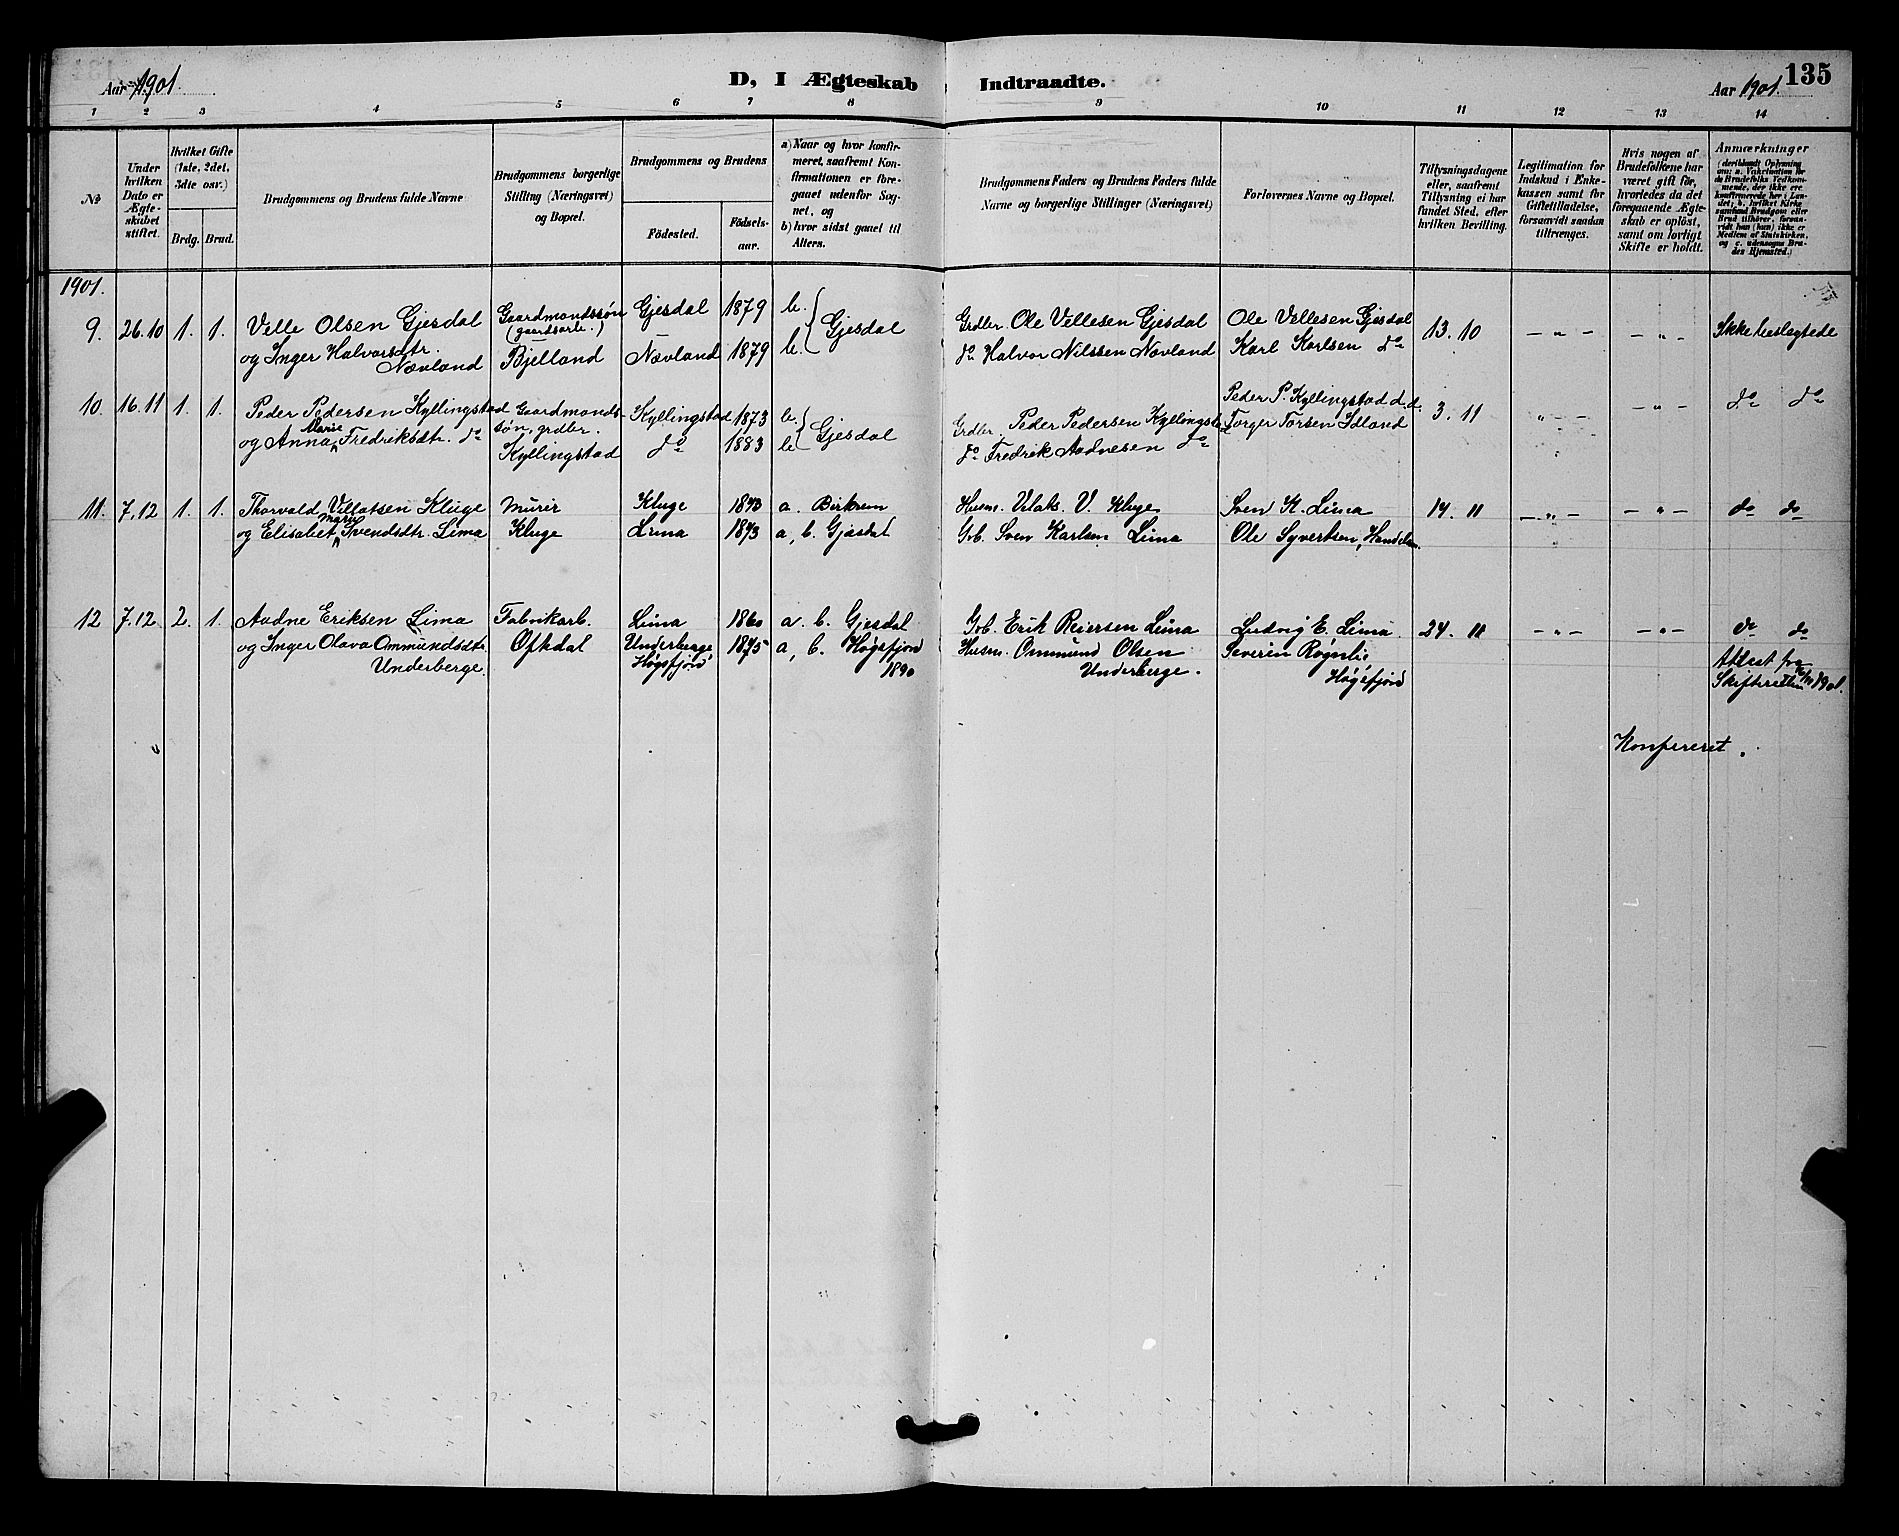 Aar 1901.
D, I Ægteskab Indtraadte.
Aar 1901.
135
1 2 3 4 5 6 7 8 9 10 11 12 13 14
№
Under hvilken Dato er Ægteskabet stiftet.
Hvilket Gifte (1ste, 2det, 3die osv.)
Brdg. Brud.
Brudgommens og Brudens fulde Navne
Brudgommens borgerlige Stilling (Næringsvei) og Bopæl.
Brudgommens og Brudens
Födested.
Födselsaar.
a) Naar og hvor konfirmeret, saafremt Konfirmationen er foregaaet udenfor Sognet, og
b) hvor sidst gaaet til Alters.
Brudgommens Faders og Brudens Faders fulde Navne og borgerlige Stillinger (Næringsvei)
Forlovernes Navne og Bopæl.
Tillysningsdagene eller, saafremt Tillysning ei har fundet Sted, efter hvilken Bevilling.
Legitimation for Indskud i Enkekassen samt for Giftetilladelse, forsaavidt saadan tiltrænges.
Hvis nogen af Brudefolkene har været gift för, hvorledes da det foregaaende Ægteskab er oplöst, samt om lovligt Skifte er holdt.
Anmærkninger
(deriblandt Oplysning om: a. Vaksination for de Brudefolks Vedkommende, der ikke ere konfirmerede her i Landet; b. hvilket Kirkesamfund Brudgom eller Brud tilhörer, forsaavidt han (hun) ikke er Medlem af Statskirken, og c. udensogns Brudes Hjemsted.)
1901.
9. 26.10 1. 1. Velle Olsen Gjesdal Gaardmandssøn Gjesdal 1879 b. Grdbr. Ole Vellesen Gjesdal Ole Vellesen Gjesdal 13. 10 — „ — — „ — Ikke beslegtede
(gaardsarb.) Gjesdal
og Inger Halvorsdtr. Bjelland Nævland 1879 b. do Halvor Nilssen Nævland Karl Karlsen do
Nævland
10. 16.11 1. 1. Peder Pedersen Kyllingstad Gaardmands- Kyllingstad 1873 b. Grdbr. Peder Pedersen Kyllingstad Peder P. Kyllingstad d.d. 3. 11 „ — — „ — do do
Marie søn, grdbr. Gjesdal
og Anna Fredriksdtr. do Kyllingstad do 1883 b. do Fredrik Aadnesen do Torger Torsen Idland
11. 7.12 1. 1. Thorvald Villatsen Kluge Murer Kluge 1873 a. Birkrem Husm. Vilats V. Kluge Sven K. Lima 14. 11 — „ — — „ — do do
Marie
og Elisabet Svendsdtr. Lima Kluge Lima 1873 a, b. Gjesdal Gb. Sven Karlsen Lima Ole Syvertsen, Handelsm.
12 7.12. 2. 1. Aadne Eriksen Lima Fabrikarb. Lima 1860 a. b. Gjesdal Gb. Erik Reiersen Lima Ludvig E. Lima. 24. 11 — „ — — „ — do do
og Inger Olava Ommundsdtr. Oftedal Underberge 1875 a, b. Høgsfjord Husm. Ommund Olsen Severin Rognli Attest fra
Underberge. Høgsfjord 1890 Underberge. Høgsfjord Skifteretten 1901.
Konfereret.